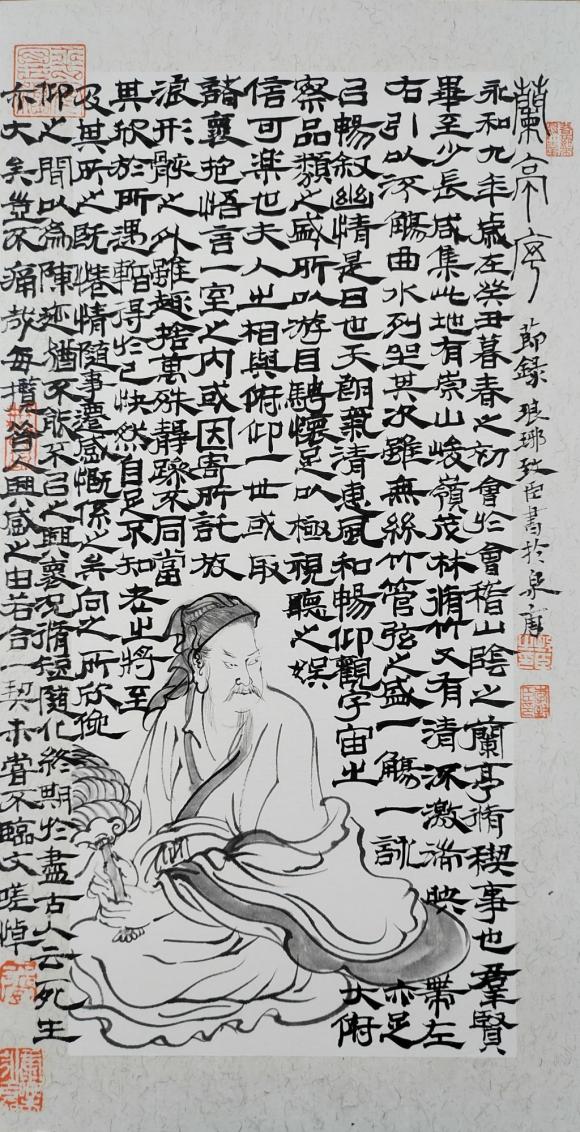 蘭亭序
節録 琅琊致臣書於泉唐
永和九年歳在癸丑暮春之初會於會稽山陰之蘭亭脩稧事也羣賢
畢至少長咸集此地有崇山峻嶺茂林脩竹又有清流激湍映帶左
右引以流觴曲水列坐其次雖無絲竹管弦之盛一觴一詠亦足
㠯暢叙幽情是日也天朗氣清恵風和暢仰觀宇宙之大俯
察品類之盛所以游目騁懷足以極視聽之娯
信可楽也夫人之相與俯仰一世或取
諸褱抱悟言一室之内或因寄所託放
浪形骸之外雖趣捨萬殊靜躁不同當
其欣於所遇暫得於己快然自足不知老之將至
及其所之既惓情隨事遷感慨係之矣向之所欣俛
仰之間以為陳迹猶不能不㠯之興褱况脩短隨化終期於盡古人云死生
亦大矣豈不痛哉每攬昔人興感之由若合一契未甞不臨文嗟悼